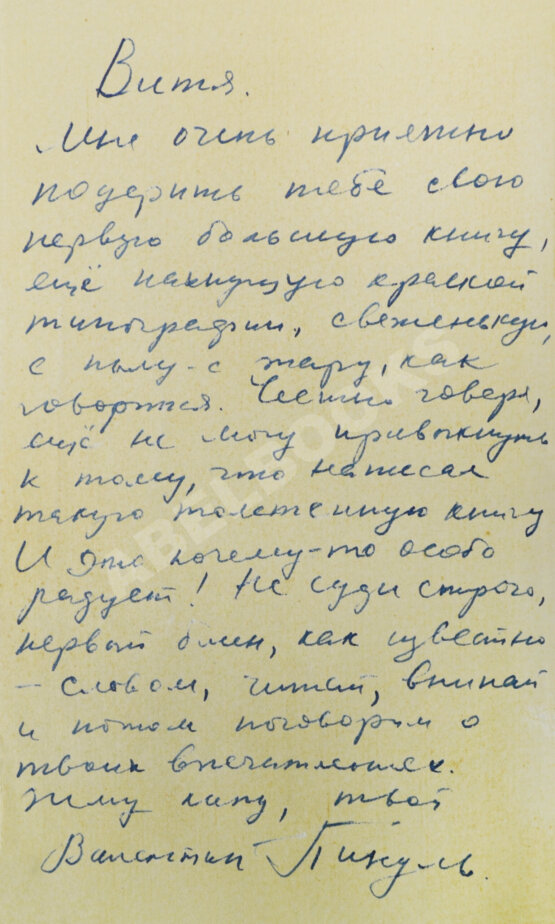 Витя.
Мне очень приятно
подарить тебе свою
первую большую книгу,
ещё пахнущую краской
типографии, свеженькую,
с пылу-с жару, как
говорится. Честно говоря,
ещё не могу привыкнуть
к тому, что написал
такую толстенную книгу
И это почему-то особо
радует! Не суди строго,
первый блин, как известно
– словом, читай, вникай
и потом поговорим о
твоих впечатлениях.
Жму лапу, твой
Валентин Пикуль.
ABELBOOKS